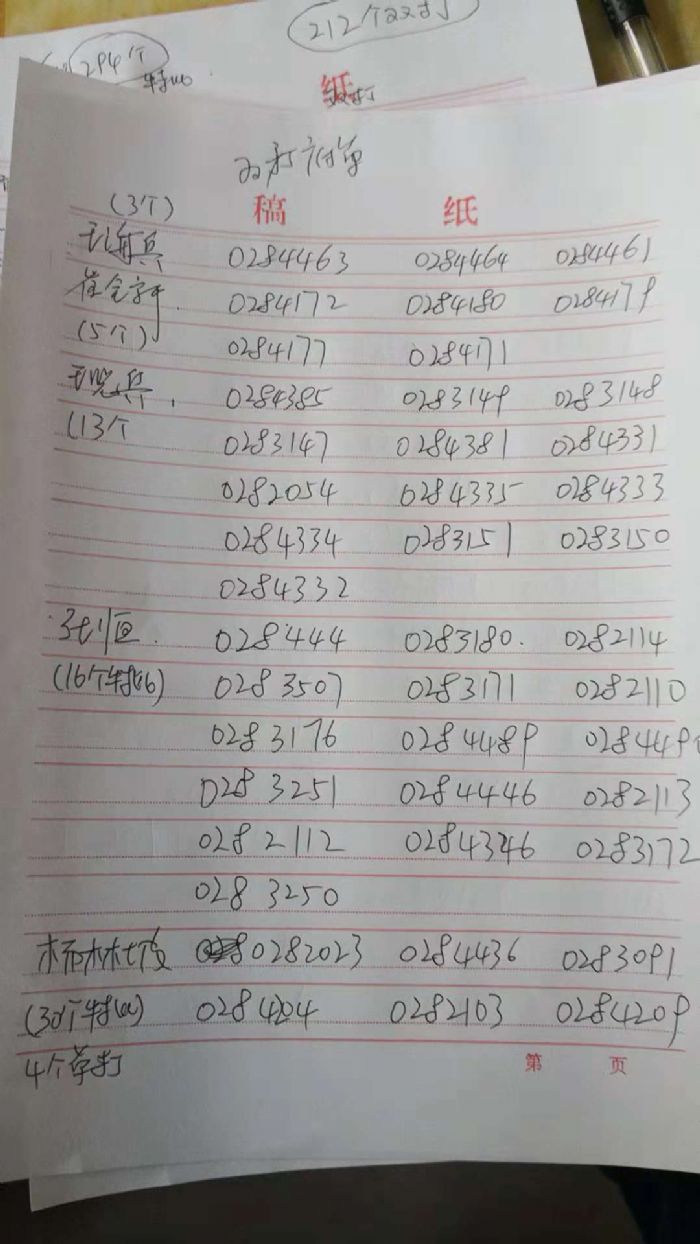 212个双打
294个
纸
(3个)
稿 纸
0284463 0284464 0284461
0284172 0284180 0284179
(5个) 0284177 0284171
0284385 0283149 0283148
(13个 0283147 0284381 0284331
0282054 0284335 0284333
0284334 0283151 0283150
0284332
028444 0283180. 0282114
(16个 0283507 0283171 0282110
0283176 0284489 028449
0283251 0284446 0282113
0282112 0284346 0283172
0283250
杨林坡 0282023 0284436 0283091
(30个 0284204 0282103 0284209
4个单打
第 页